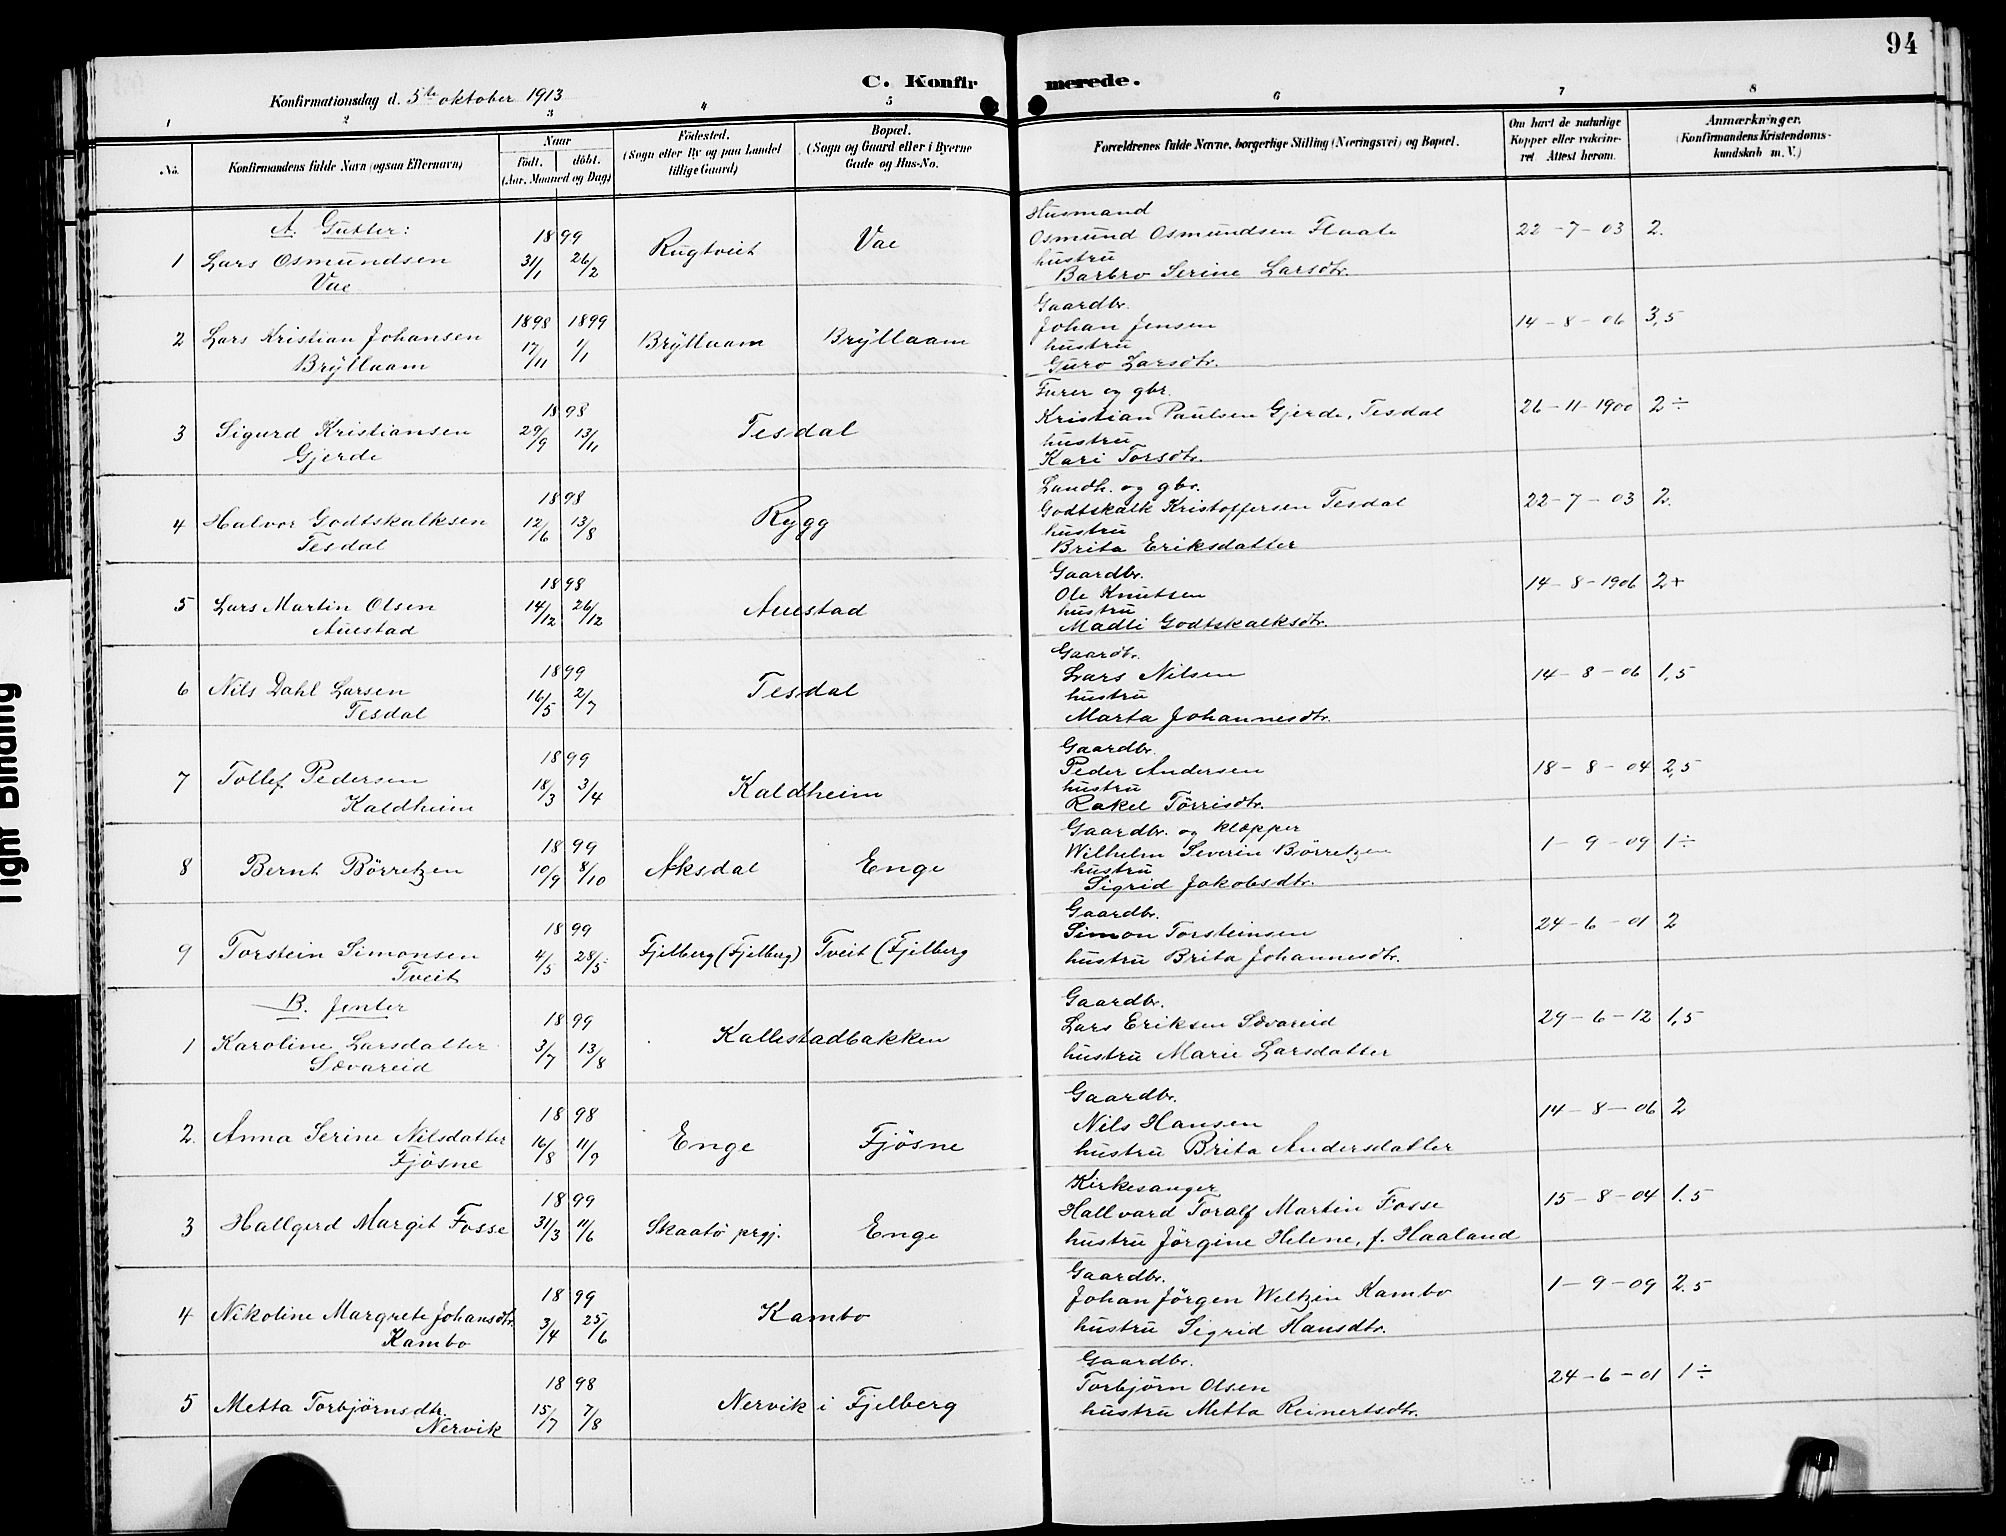 94
C. Konfirmerede.
Konfirmationsdag d. 5te oktober 1913
1 2 3 4 5 6 7 8
No.
Konfirmandens fulde Navn (ogsaa Efternavn)
Naar
födt. döbt.
(Aar, Maaned og Dag)
Födested.
(Sogn eller By og paa Landet
tillige Gaard)
Bopæl.
(Sogn og Gaard eller i Byerne
Gade og Hus-No.
Forældrenes fulde Navne, borgerlige Stilling (Næringsvei) og Bopæl.
Om havt de naturlige
Kopper eller vakcine-
ret. Attest herom.
Anmærkninger.
(Konfirmandens Kristendoms-
kundskab m. V.)
A. Gutter:
1 Lars Osmundsen
Vae
1899
31/1 26/2
Rugtveit
Vae
Husmand
Osmund Osmundsen Flaate
hustru
Barbro Serine Larsdtr.
22-7-03 2.
2 Lars Kristian Johansen
Bryllaam
1898 1899
17/11 1/1
Bryllaam
Bryllaam
Gaardbr.
Johan Jensen
hustru
Guro Larsdtr.
14-8-06 3,5
3 Sigurd Kristiansen
Gjerde
1898
29/9 13/11
Tesdal
Furer og gbr.
Kristian Paulsen Gjerde, Tesdal
hustru
Kari Torsdtr.
26-11-1900 2÷
4 Halvor Godtskalksen
Tesdal
1898
12/6 13/8
Rygg
Landh. og gbr.
Godtskalk Kristoffersen Tesdal
hustru
Brita Eriksdatter
22-7-03 2.
5 Lars Martin Olsen
Auestad
1898
14/12 26/12
Auestad
Gaardbr.
Ole Knutsen
hustru
Madli Godtskalksdtr.
14-8-1906 2+
6 Nils Dahl Larsen
Tesdal
1899
16/5 2/7
Tesdal
Gaardbr.
Lars Nilsen
hustru
Marta Johannesdtr.
14-8-06 1,5
7 Tollef Pedersen
Kaldheim
1899
18/3 3/4
Kaldheim
Gaardbr.
Peder Andersen
hustru
Rakel Tørrisdtr.
18-8-04 2,5
8 Bernt Börretzen
1899
10/9 8/10
Aksdal
Enge
Gaardbr. og klopper
Wilhelm Severin Börretzen
hustru
Sigrid Jakobsdtr.
1-9-09 1÷
9 Torstein Simonsen
Tveit
1899
4/5 28/5
Fjelberg (Fjelberg)
Tveit (Fjelberg
Gaardbr.
Simon Torsteinsen
hustru Brita Johannesdtr.
24-6-01 2
B. Jenter
1 Karoline Larsdatter
Sævareid
1899
3/7 13/8
Kallestadbakken
Gaardbr.
Lars Eriksen Sævareid
hustru Marie Larsdatter
29-6-12 1,5
2. Anna Serine Nilsdatter
Fjösne
1898
16/8 11/9
Enge
Fjösne
Gaardbr.
Nils Hansen
hustru Brita Andersdatter
14-8-06 2
3 Hallgerd Margit Fosse
1899
31/3 11/6
Skaatö prgj.
Enge
Kirkesanger
Hallvard Toralf Martin Fosse
hustru Jörgine Helene, f. Haaland
15-8-04 1.5
4 Nikoline Margrete Johansdtr.
Kambo
1899
3/4 25/6
Kambo
Gaardbr.
Johan Jörgen Weltzin Kambo
hustru Sigrid Hansdtr.
1-9-09 2.5
5 Metta Torbjørnsdtr.
Nervik
1898
15/7 7/8
Nervik i Fjelberg
Gaardbr.
Torbjörn Olsen
hustru Metta Reinertsdtr.
24-6-01 1÷
Tight Binding